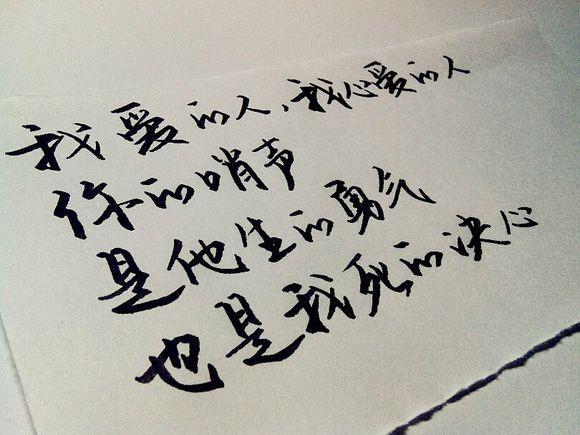 我爱的人、我心爱的人
你的哨声
是他生的勇气
也是我死的决心